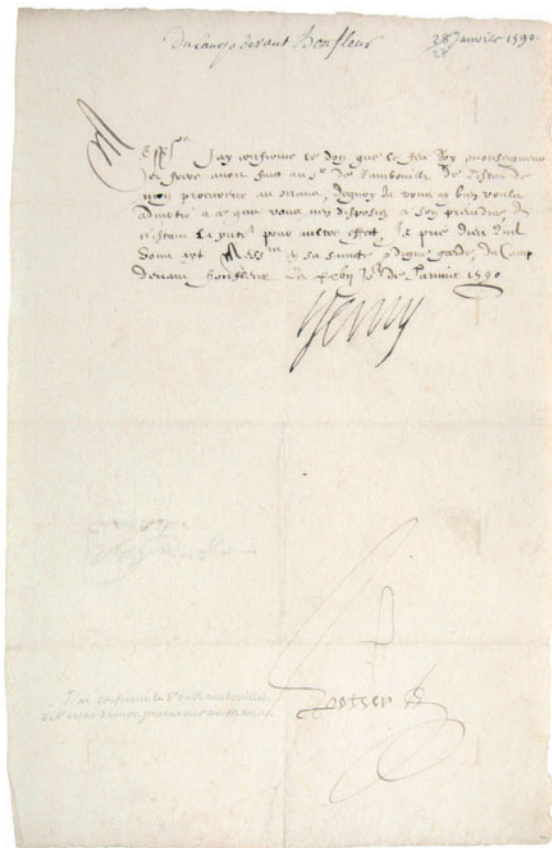 Du Camp devant Honfleur 28 Janvier 1590.
27
Mess^rs J'ay confirmé le don que le feu Roy monseigneur
et frere avoit faict au s^r de Rambouillet de l'estat de
mon procureur au Mans, de quoy Je vous ay bien voulu
advertir a ce que vous ne disposiez a son prejudice de
pour aultre effect, Je prie dieu qu'il
vous ayt Mess^rs en sa saincte et digne garde, du Camp
devant honfleur Le Jo^r de Janvier 1590
Henry
Potier
J'ai confirmé le S^r de Rambouillet
de l'estat de mon procureur au Mans.